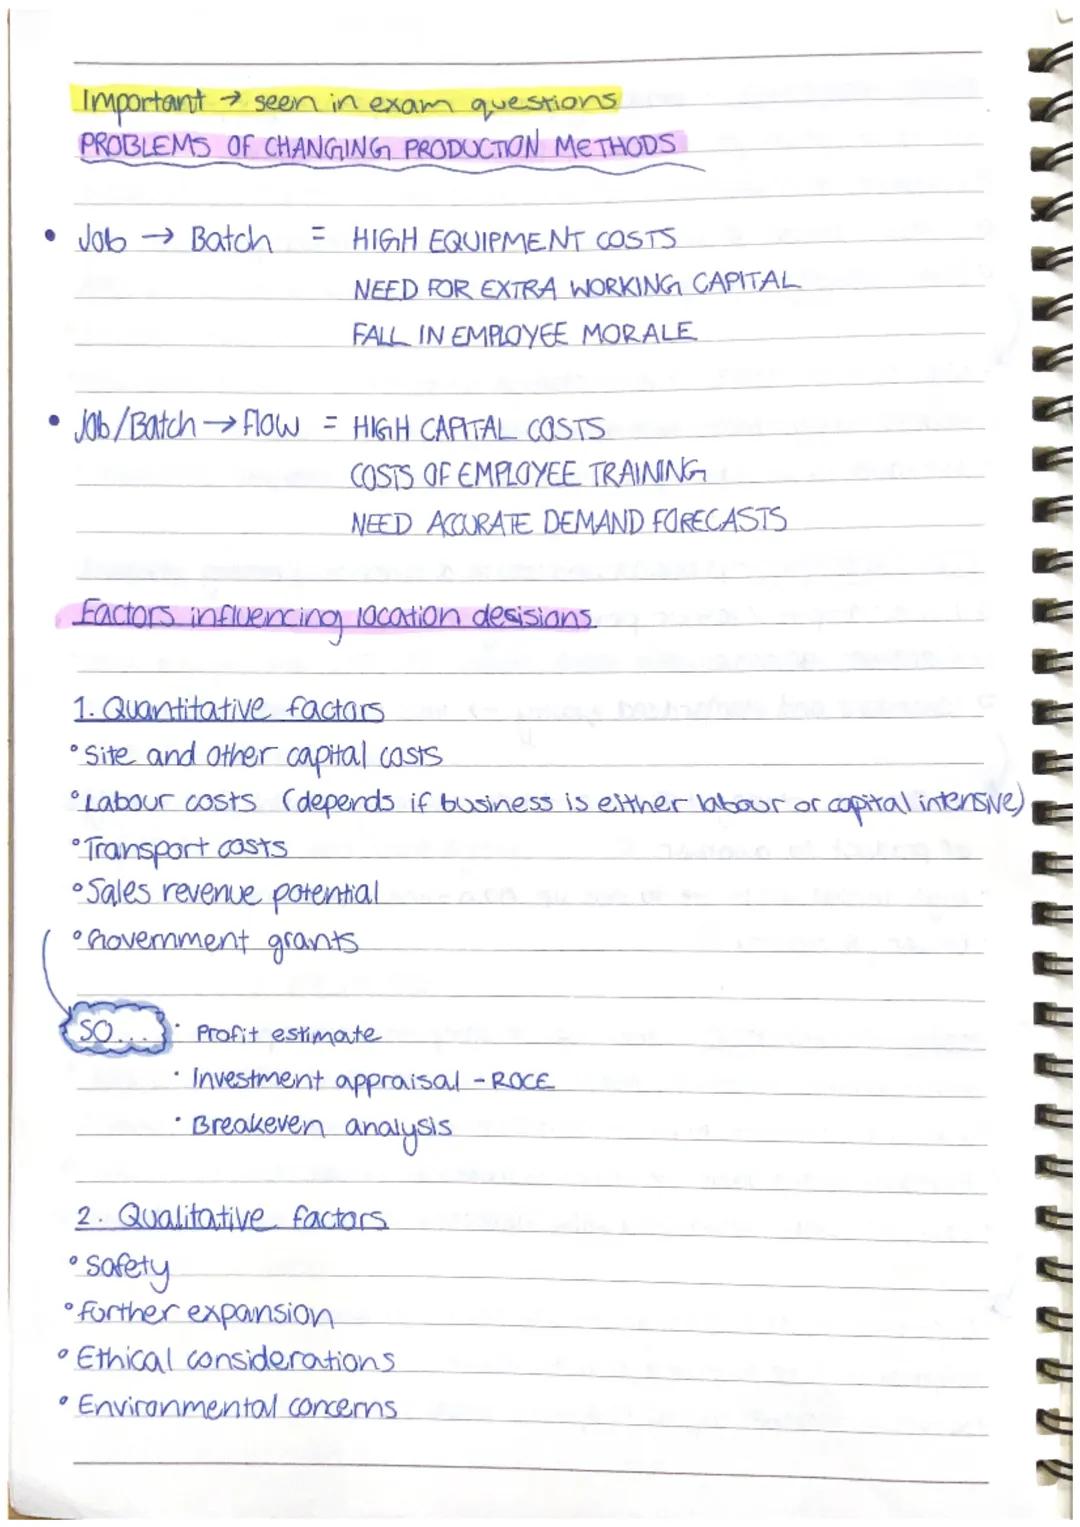 Important → seen in exam questions
PROBLEMS OF CHANGING PRODUCTION METHODS
• Job → Batch = HIGH EQUIPMENT COSTS
NEED FOR EXTRA WORKING CAPITAL
FALL IN EMPLOYEE MORALE
• Job/Batch → flow = HIGH CAPITAL COSTS
COSTS OF EMPLOYEE TRAINING
NEED ACCURATE DEMAND FORECASTS
Factors influencing location desisions
1. Quantitative factors
° Site and other capital costs
° Labour costs (depends if business is either labour or capital intensive)
° Transport costs
° Sales revenue potential
° Government grants
SO... · Profit estimate
· Investment appraisal - ROCE
· Breakeven analysis
2. Qualitative factors
° Safety
° further expansion
° Ethical considerations
° Environmental concerns